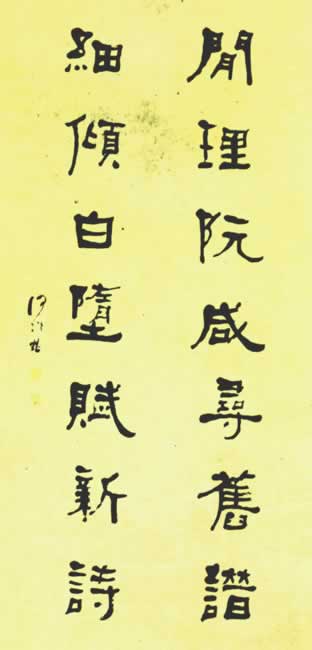 閒理阮咸尋舊譜
細傾白墮賦新詩